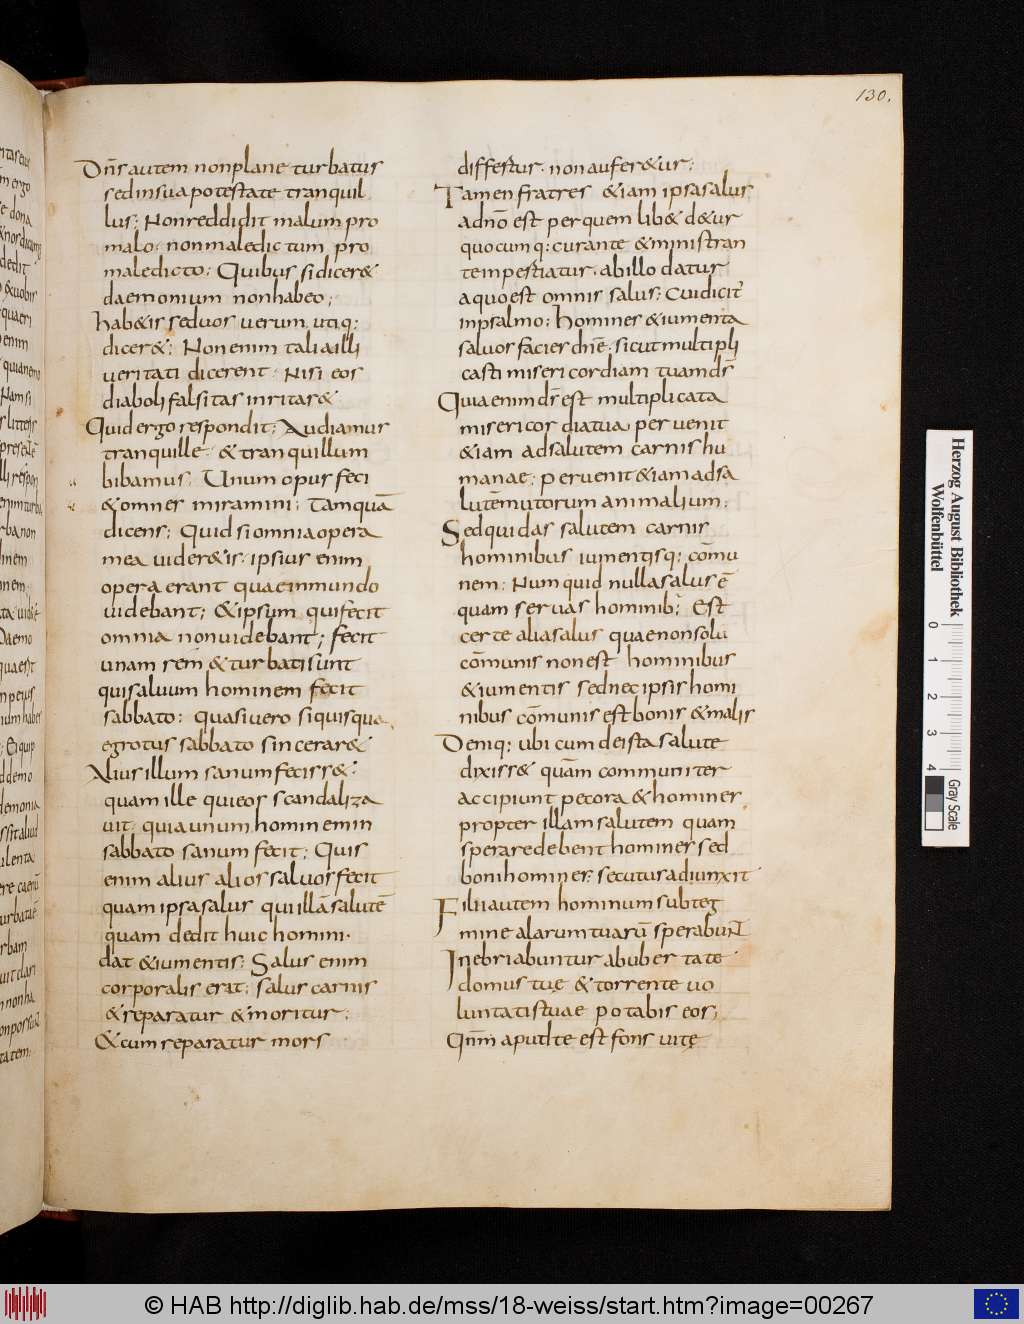 130.
Dn̄s autem non plane turbatus
sed in sua potestate tranquil
lus; Non reddidit malum pro
malo; non maledictum pro
maledicto; Quibus si dicer&
daemonium non habeo;
hab&is sed uos uerum utiq;
dicer&; Non enim tali a illi
ueritati dicerent. Nisi eos
diaboli falsitas inritar&
Quid ergo respondit; Audiamus
tranquille & tranquillum
bibamus; Unum opus feci
& omnes miramini; Tamquā
dicens; Quid si omnia opera
mea uider&is; ipsius enim
opera erant quae in mundo
uidebant; & ipsum qui fecit
omnia non uidebant; fecit
unam rem & turbati sunt
qui saluum hominem fecit
sabbato; quasi uero si quisqua
egrotus sabbato sincerar&
Alius illum sanum feciss&;
quam ille qui eos scandaliza
uit; quia unum hominem in
sabbato sanum fecit; Quis
enim alius alios saluos fecit
quam ipsa salus qui illā salutē
quam dedit huic homini.
dat & iumentis; Salus enim
corporalis erat; salus carnis
& reparatur & moritur;
& cum reparatur mors
differtur. non aufer&ur;
Tamen fratres &iam ipsa salus
ad nō est per quem lib& d&ur
quocumq; curante & ministran
te impertiatur. ab illo datur
a quo est omnis salus; Cui dicit'
in psalmo; Homines & iumenta
saluos facies dn̄e. sicut multipli
casti misericordiam tuam d̄s
Quia enim d̄s est multiplicata
misericordia tua peruenit
&iam ad salutem carnis hu
manae; peruenit &iam ad sa
lutē mutorum animalium;
Sed qui das salutem carnis
hominibus iumentisq; cōmu
nem; Numquid nulla salus ē
quam seruas hominib; Est
certe alia salus quae non solū
cōmunis non est hominibus
& iumentis sed nec ipsis homi
nibus cōmunis est bonis & malis
Deniq; ubi cum de ista salute
dixiss& quām communiter
accipiunt pecora & homines
propter illam salutem quam
sperare debent homines sed
boni homines; secutus adiunxit
Filii autem hominum sub teg
mine alarum tuarū sperabun̄t
Inebriabuntur ab ubertate
domus tuę & torrente uo
luntatis tuae potabis eos;
Qn̄m aput te est fons uitę
Herzog August Bibliothek
Wolfenbüttel
0 1 2 3 4
Gray Scale
© HAB http://diglib.hab.de/mss/18-weiss/start.htm?image=00267